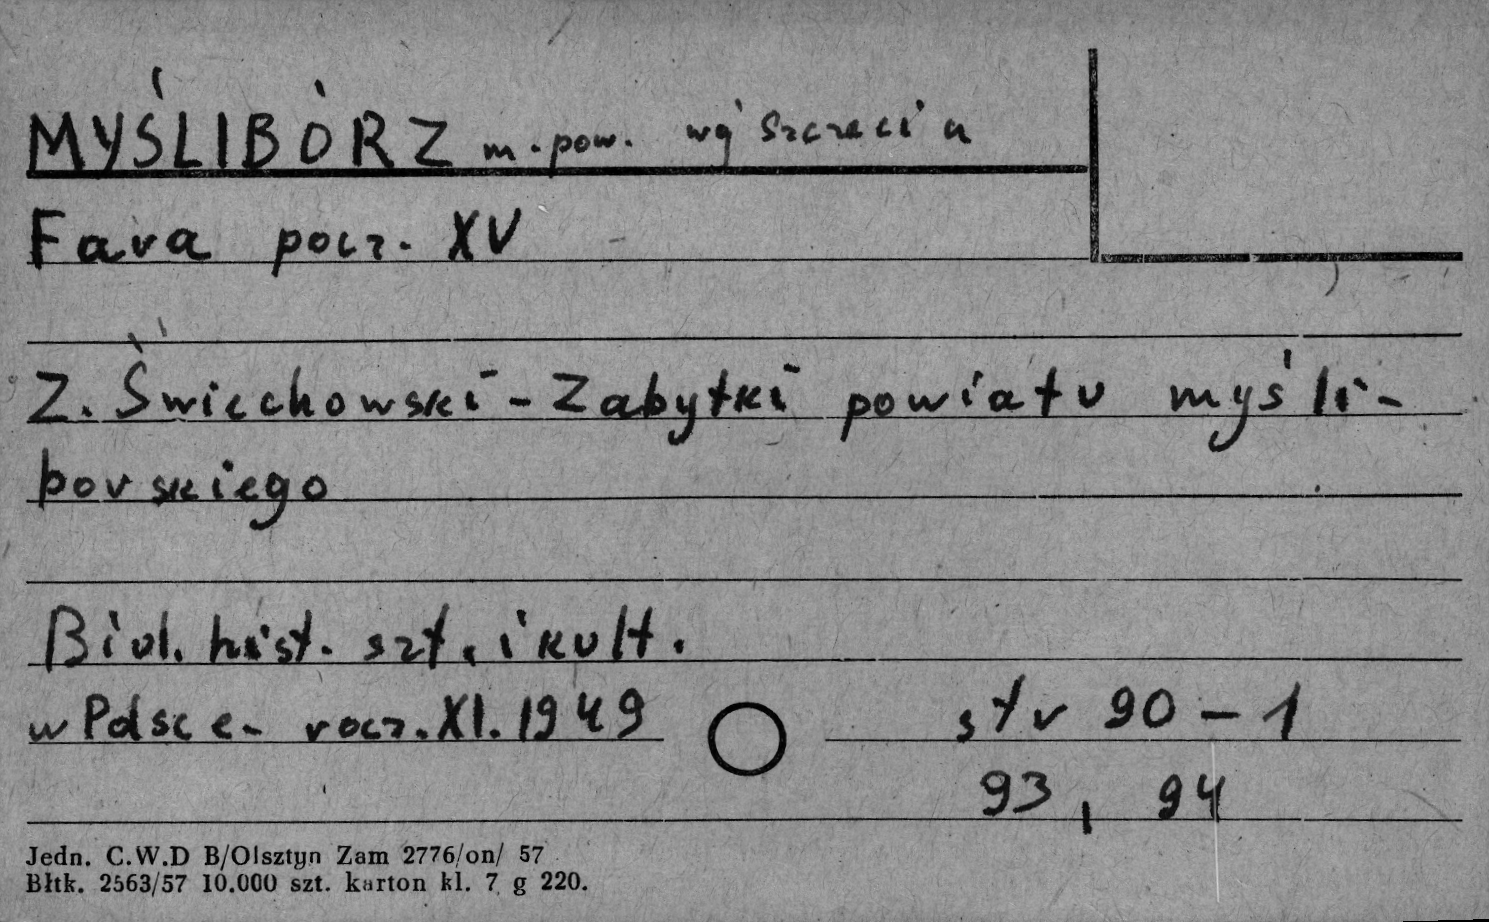 MYŚLIBÓRZ m. pow. woj Szczecin
Fara pocz. XV
Z. Świechowski - Zabytki powiatu myśli-
borskiego
Biul. hist. szt. i kult.
w Polsce - rocz. XI. 1949 str 90-1
93, 94
Jedn. C.W.D B/Olsztyn Zam 2776/on/ 57
Błtk. 2563/57 10.000 szt. karton kl. 7 g 220.